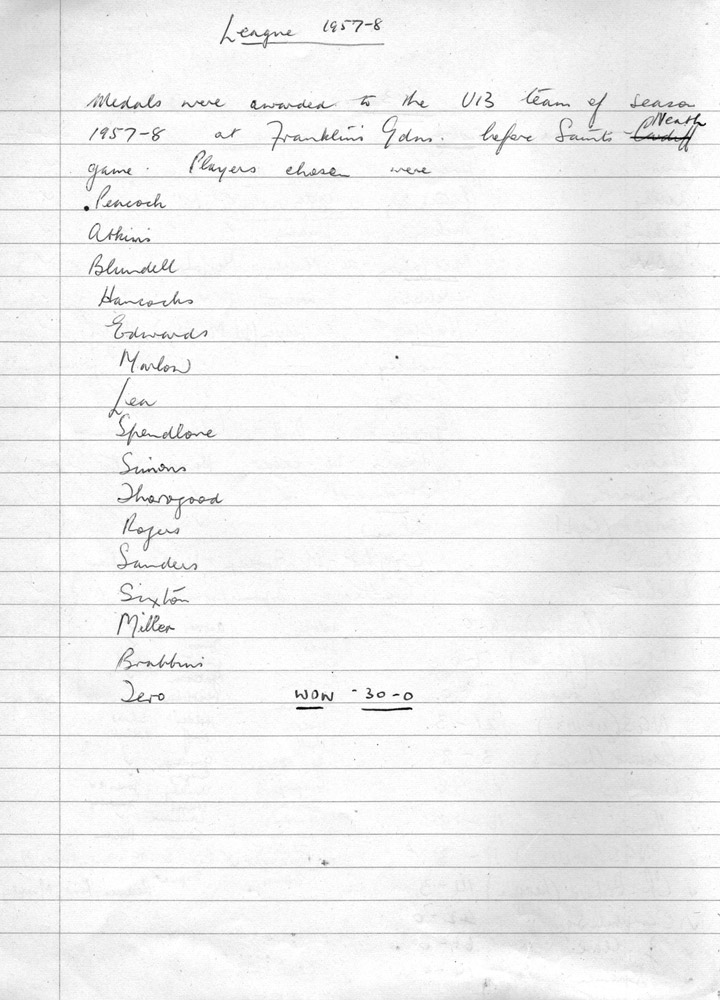 League 1957-8
Medals were awarded to the U13 team of season
1957-8 at Franklins Gdns. before Saints - Cardiff Neath
game. Players chosen were
. Peacock
Atkins
Blundell
Hancocks
Edwards
Marlow
Lea
Spendlove
Simons
Thorogood
Rogers
Sanders
Sixton
Miller
Brabbins
Zero WON - 30-0